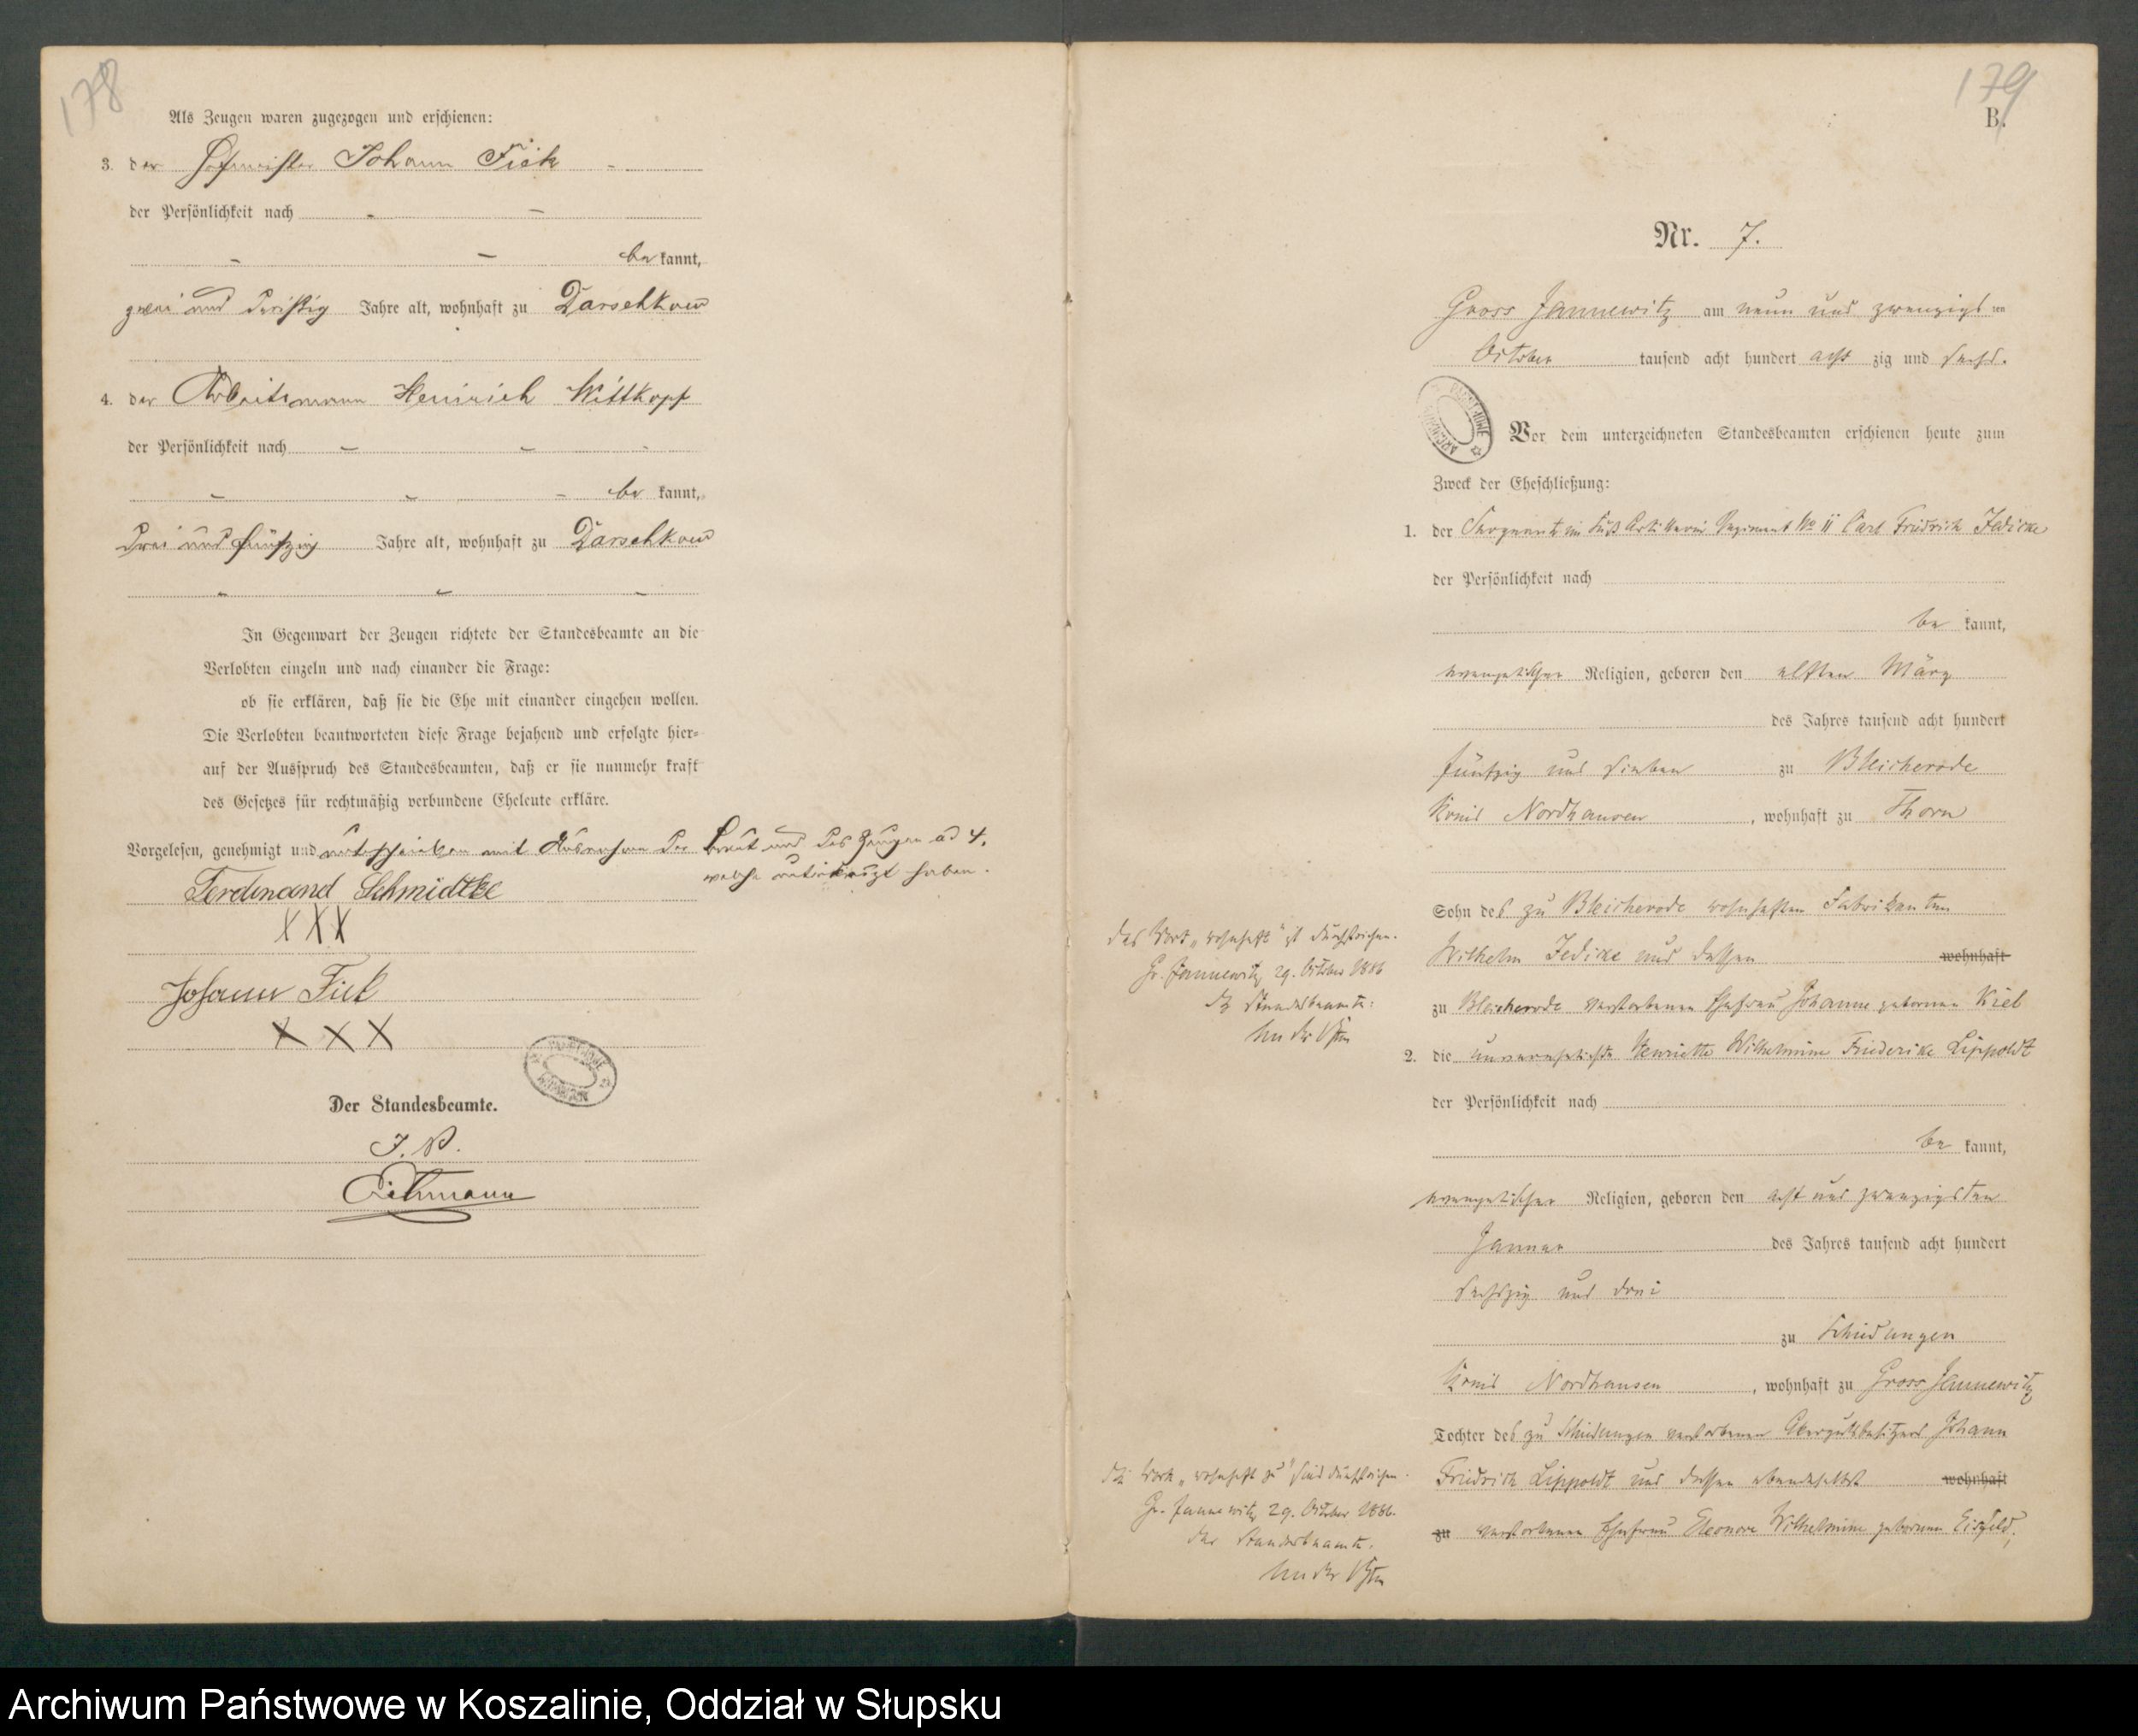 178
Als Zeugen waren zugezogen und erschienen:
3. der Hofmeister Johann Fick -
der Persönlichkeit nach - -
- - be kannt,
zwei und dreißig Jahre alt, wohnhaft zu Darschkow
4. der Arbeitsmann Heinrich Wittkopf
der Persönlichkeit nach - - -
- - - be kannt,
drei und fünfzig Jahre alt, wohnhaft zu Darschkow
- - -
In Gegenwart der Zeugen richtete der Standesbeamte an die
Verlobten einzeln und nach einander die Frage:
ob sie erklären, daß sie die Ehe mit einander eingehen wollen.
Die Verlobten beantworteten diese Frage bejahend und erfolgte hier-
auf der Ausspruch des Standesbeamten, daß er sie nunmehr kraft
des Gesetzes für rechtmäßig verbundene Eheleute erkläre.
Vorgelesen, genehmigt und unterschrieben mit Ausnahme der Braut und des Zeugen ad 4,
welche unterkreuzt haben.
Ferdinand Schmidtke
XXX
Johann Fick
X X X
Der Standesbeamte.
I. V.
179
B.
Nr. 7.
Gross Jannewitz am neun und zwanzigsten
October tausend acht hundert acht zig und sechs.
Vor dem unterzeichneten Standesbeamten erschienen heute zum
Zweck der Eheschließung:
1. der Sergeant im Fuß Artillerie Regiment No 11 Carl Friedrich Jedicke
der Persönlichkeit nach
be kannt,
evangelischer Religion, geboren den elften März
des Jahres tausend acht hundert
fünfzig und sieben zu Bleicherode
Kreis Nordhausen, wohnhaft zu Thorn
Sohn des zu Bleicherode wohnhaften Fabrikanten
Wilhelm Jedicke und dessen wohnhaft
zu Bleicherode verstorbenen Ehefrau Johanne geborenen Kiel
das Wort „wohnhaft" ist durchstrichen.
Gr. Jannewitz 29. October 1886
Der Standesbeamte:
2. die unverehelichte Henriette Wilhelmine Friederike Lippoldt
der Persönlichkeit nach
be kannt,
evangelischer Religion, geboren den acht und zwanzigsten
Januar des Jahres tausend acht hundert
sechszig und drei
zu Schiedungen
Kreis Nordhausen, wohnhaft zu Gross Jannewitz
Tochter des zu Schiedungen verstorbenen Ackergutsbesitzers Johann
Friedrich Lippoldt und dessen ebendaselbst wohnhaft
zu verstorbenen Ehefrau Eleonore Wilhelmine geborenen Eisfeld,
die Worte „wohnhaft zu" sind durchstrichen.
Gr. Jannewitz 29. October 1886.
Der Standesbeamte.
Archiwum Państwowe w Koszalinie, Oddział w Słupsku